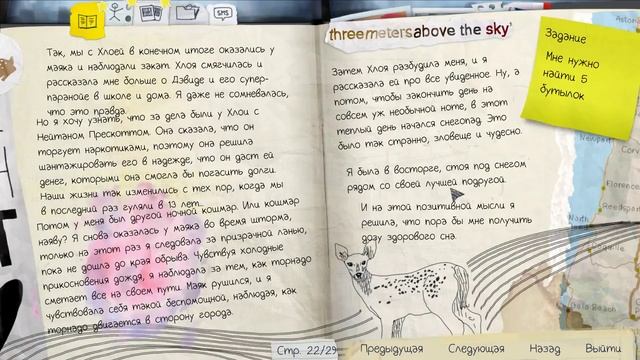 Так, мы с Хлоей в конечном итоге оказались у
маяка и наблюдали закат. Хлоя смягчилась и
рассказала мне больше о Дэвиде и его супер-
паранойе в школе и дома. Я даже не сомневалась,
что это правда.
Но я хочу узнать, что за дела были у Хлои с
Нейтаном Прескоттом. Она сказала, что он
торгует наркотиками, поэтому она решила
шантажировать его в надежде, что он даст ей
денег, которыми она смогла бы погасить долги.
Наши жизни так изменились с тех пор, когда мы
в последний раз гуляли в 13 лет...
Потом у меня был другой ночной кошмар. Или кошмар
наяву? Я снова оказалась у маяка во время шторма,
только на этот раз я следовала за призрачной ланью,
пока не дошла до края обрыва. Чувствуя холодные
прикосновения дождя, я наблюдала за тем, как торнадо
сметает все на своем пути. Маяк рушился, и я
чувствовала себя такой беспомощной, наблюдая, как
торнадо двигается в сторону города.
three meters above the sky
Затем Хлоя разбудила меня, и я
рассказала ей про все увиденное. Ну, а
потом, чтобы закончить день на
совсем уж необычной ноте, в этот
теплый день начался снегопад. Это
было так странно, зловеще и чудесно.
Я была в восторге, стоя под снегом
рядом со своей лучшей подругой.
И на этой позитивной мысли я
решила, что пора бы мне получить
дозу здорового сна.
Задание
Мне нужно
найти 5
бутылок
SMS
Стр. 22/29
Предыдущая
Следующая
Назад
Выйти